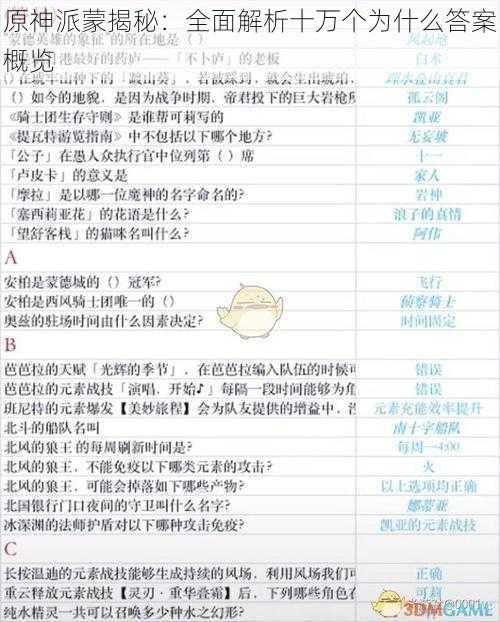 原神派蒙揭秘：全面解析十万个为什么答案概览
"蒙德英雄的象征"的所在地是（） 风起地
港最好的药庐——「不卜庐」的老板 白术
（）如今的地貌，是因为战争时期，帝君投下的巨大岩枪所 孤云阁
《骑士团生存守则》是谁帮可莉写的 凯亚
《提瓦特游览指南》中不包括以下哪个地方? 无妄坡
「公子」在愚人众执行官中位列第（）席 十一
「卢皮卡」的意义是 家人
「摩拉」是以哪一位魔神的名字命名的? 岩神
「塞西莉亚花」的花语是什么? 浪子的真情
「望舒客栈」的猫咪名叫什么? 阿伟
A
安柏是蒙德城的（）冠军? 飞行
安柏是西风骑士团唯一的（） 侦察骑士
奥兹的驻场时间由什么因素决定? 时间固定
B
芭芭拉的天赋「光辉的季节」，在芭芭拉编入队伍的时候可 错误
芭芭拉的元素战技「演唱，开始♪」每隔一段时间能够为角 错误
班尼特的元素爆发【美妙旅程】会为队友提供的增益中， 元素充能效率提升
北斗的船队名叫 南十字船队
北风的狼王 的每周刷新时间是? 每周一4:00
北风的狼王，不能免疫以下哪类元素的攻击? 火
北风的狼王，可能会掉落如下哪些产物? 以上选项均正确
北国银行门口夜间的守卫叫什么名字? 娜蒂亚
冰深渊的法师护盾对以下哪种攻击免疫? 凯亚的元素战技
C
长按温迪的元素战技能够生成持续的风场，利用风场我们可 正确
重云释放元素战技【灵刃·重华叠霜】后，下列哪些角色在 可莉
纯水精灵一共可以召唤多少种水之幻形?
3DMGAME